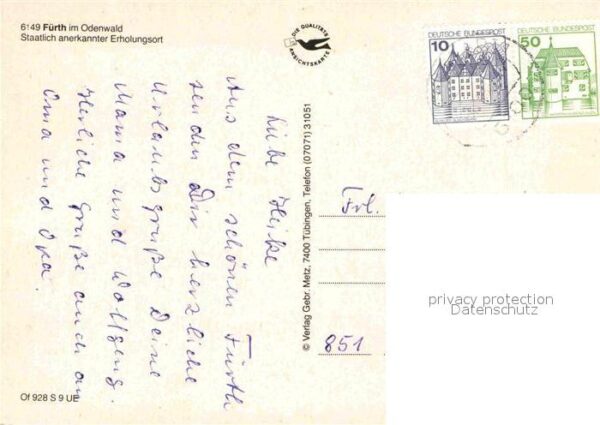 6149 Fürth im Odenwald
Staatlich anerkannter Erholungsort
DIE QUALITÄTS
ANSICHTSKARTE
10
DEUTSCHE BUNDESPOST
50
DEUTSCHE BUNDESPOST
Liebe Heike
Aus dem schönen Fürth
senden Dir herzliche
Urlaubsgrüße Deine
Mama und Wolfgang.
Herzliche Grüße auch an
Oma und Opa.
© Verlag Gebr. Metz, 7400 Tübingen, Telefon (07071) 31051
Frl.
851
privacy protection
Datenschutz
Of 928 S 9 UE